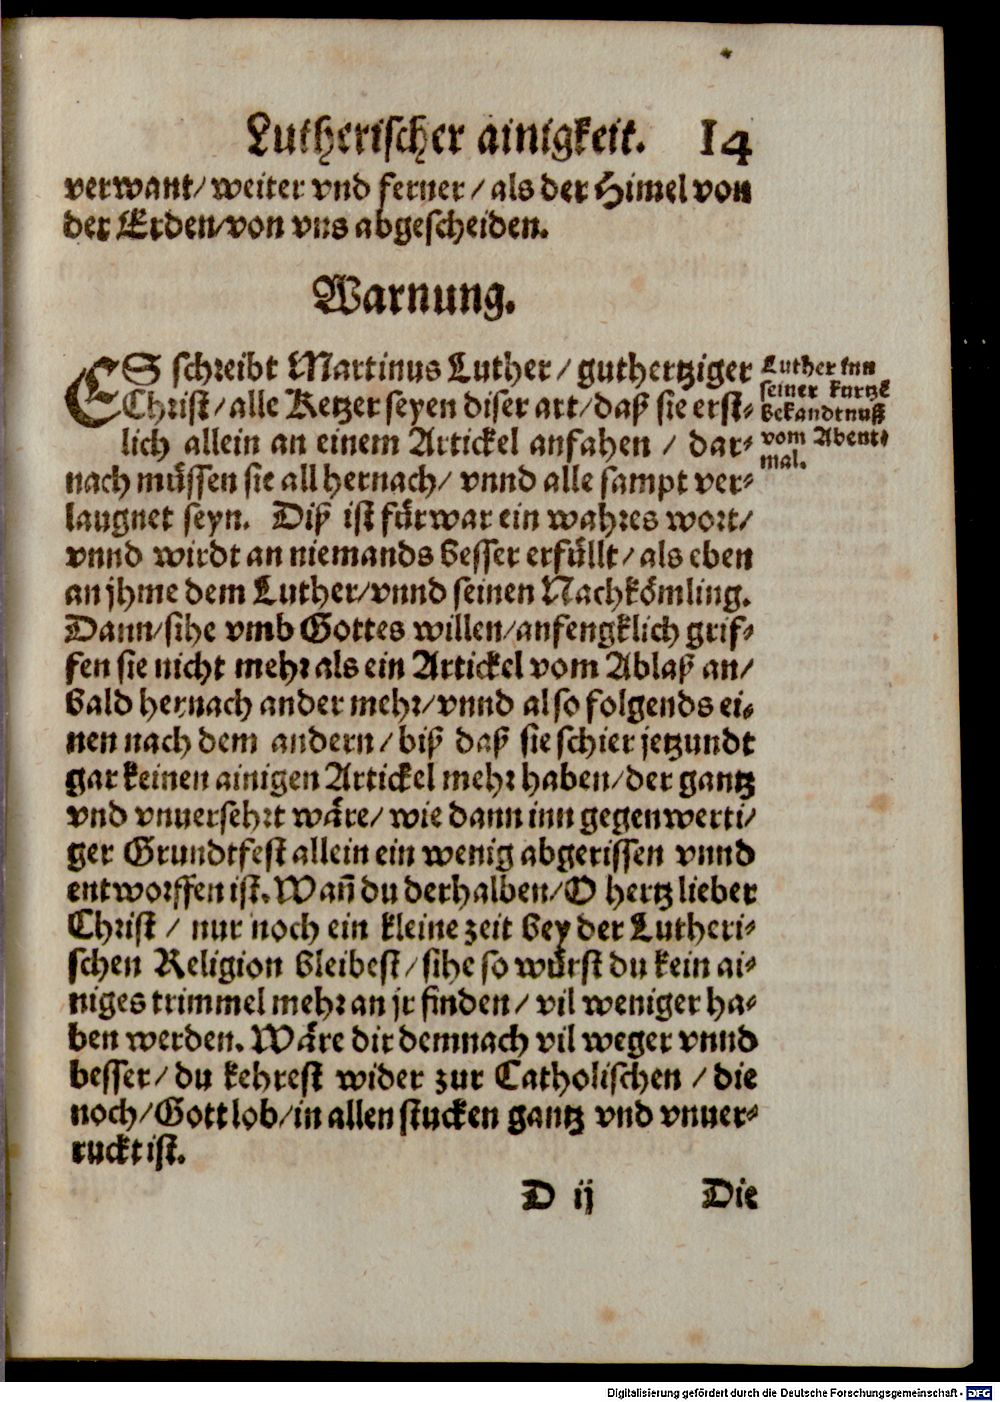 Lutherischer ainigkeit. 14
verwant/ weiter vnd ferner/ als der Himel von
der Erden/von vns abgescheiden.
Warnung.
ES schreibt Martinus Luther/ guthertziger
Christ/ alle Ketzer seyen diser art/ daß sie erst-
lich allein an einem Artickel anfahen / dar-
nach müssen sie all hernach/ vnnd alle sampt ver-
laugnet seyn. Diß ist fürwar ein wahres wort/
vnnd wirdt an niemands besser erfüllt/ als eben
an jhme dem Luther/vnnd seinen Nachkömling.
Dann/sihe vmb Gottes willen/anfengklich grif-
fen sie nicht mehr als ein Artickel vom Ablaß an/
bald hernach ander mehr/vnnd also folgends ei-
nen nach dem andern/ biß daß sie schier jetzundt
gar keinen ainigen Artickel mehr haben/der gantz
vnd vnuersehrt wäre/ wie dann inn gegenwerti-
ger Grundtfest allein ein wenig abgerissen vnnd
entworffen ist. Wañ du derhalben/O hertz lieber
Christ / nur noch ein kleine zeit bey der Lutheri-
schen Religion bleibest/ sihe so würst du kein ai-
niges trimmel mehr an jr finden/ vil weniger ha-
ben werden. Wäre dir demnach vil weger vnnd
besser/ du kehrest wider zur Catholischen / die
noch/Gott lob/in allen stucken gantz vnd vnuer-
ruckt ist.
Luther inn
seiner kurtzẽ
Bekandtnuß
vom Abent-
mal.
D ij Die
Digitalisierung gefördert durch die Deutsche Forschungsgemeinschaft - DFG